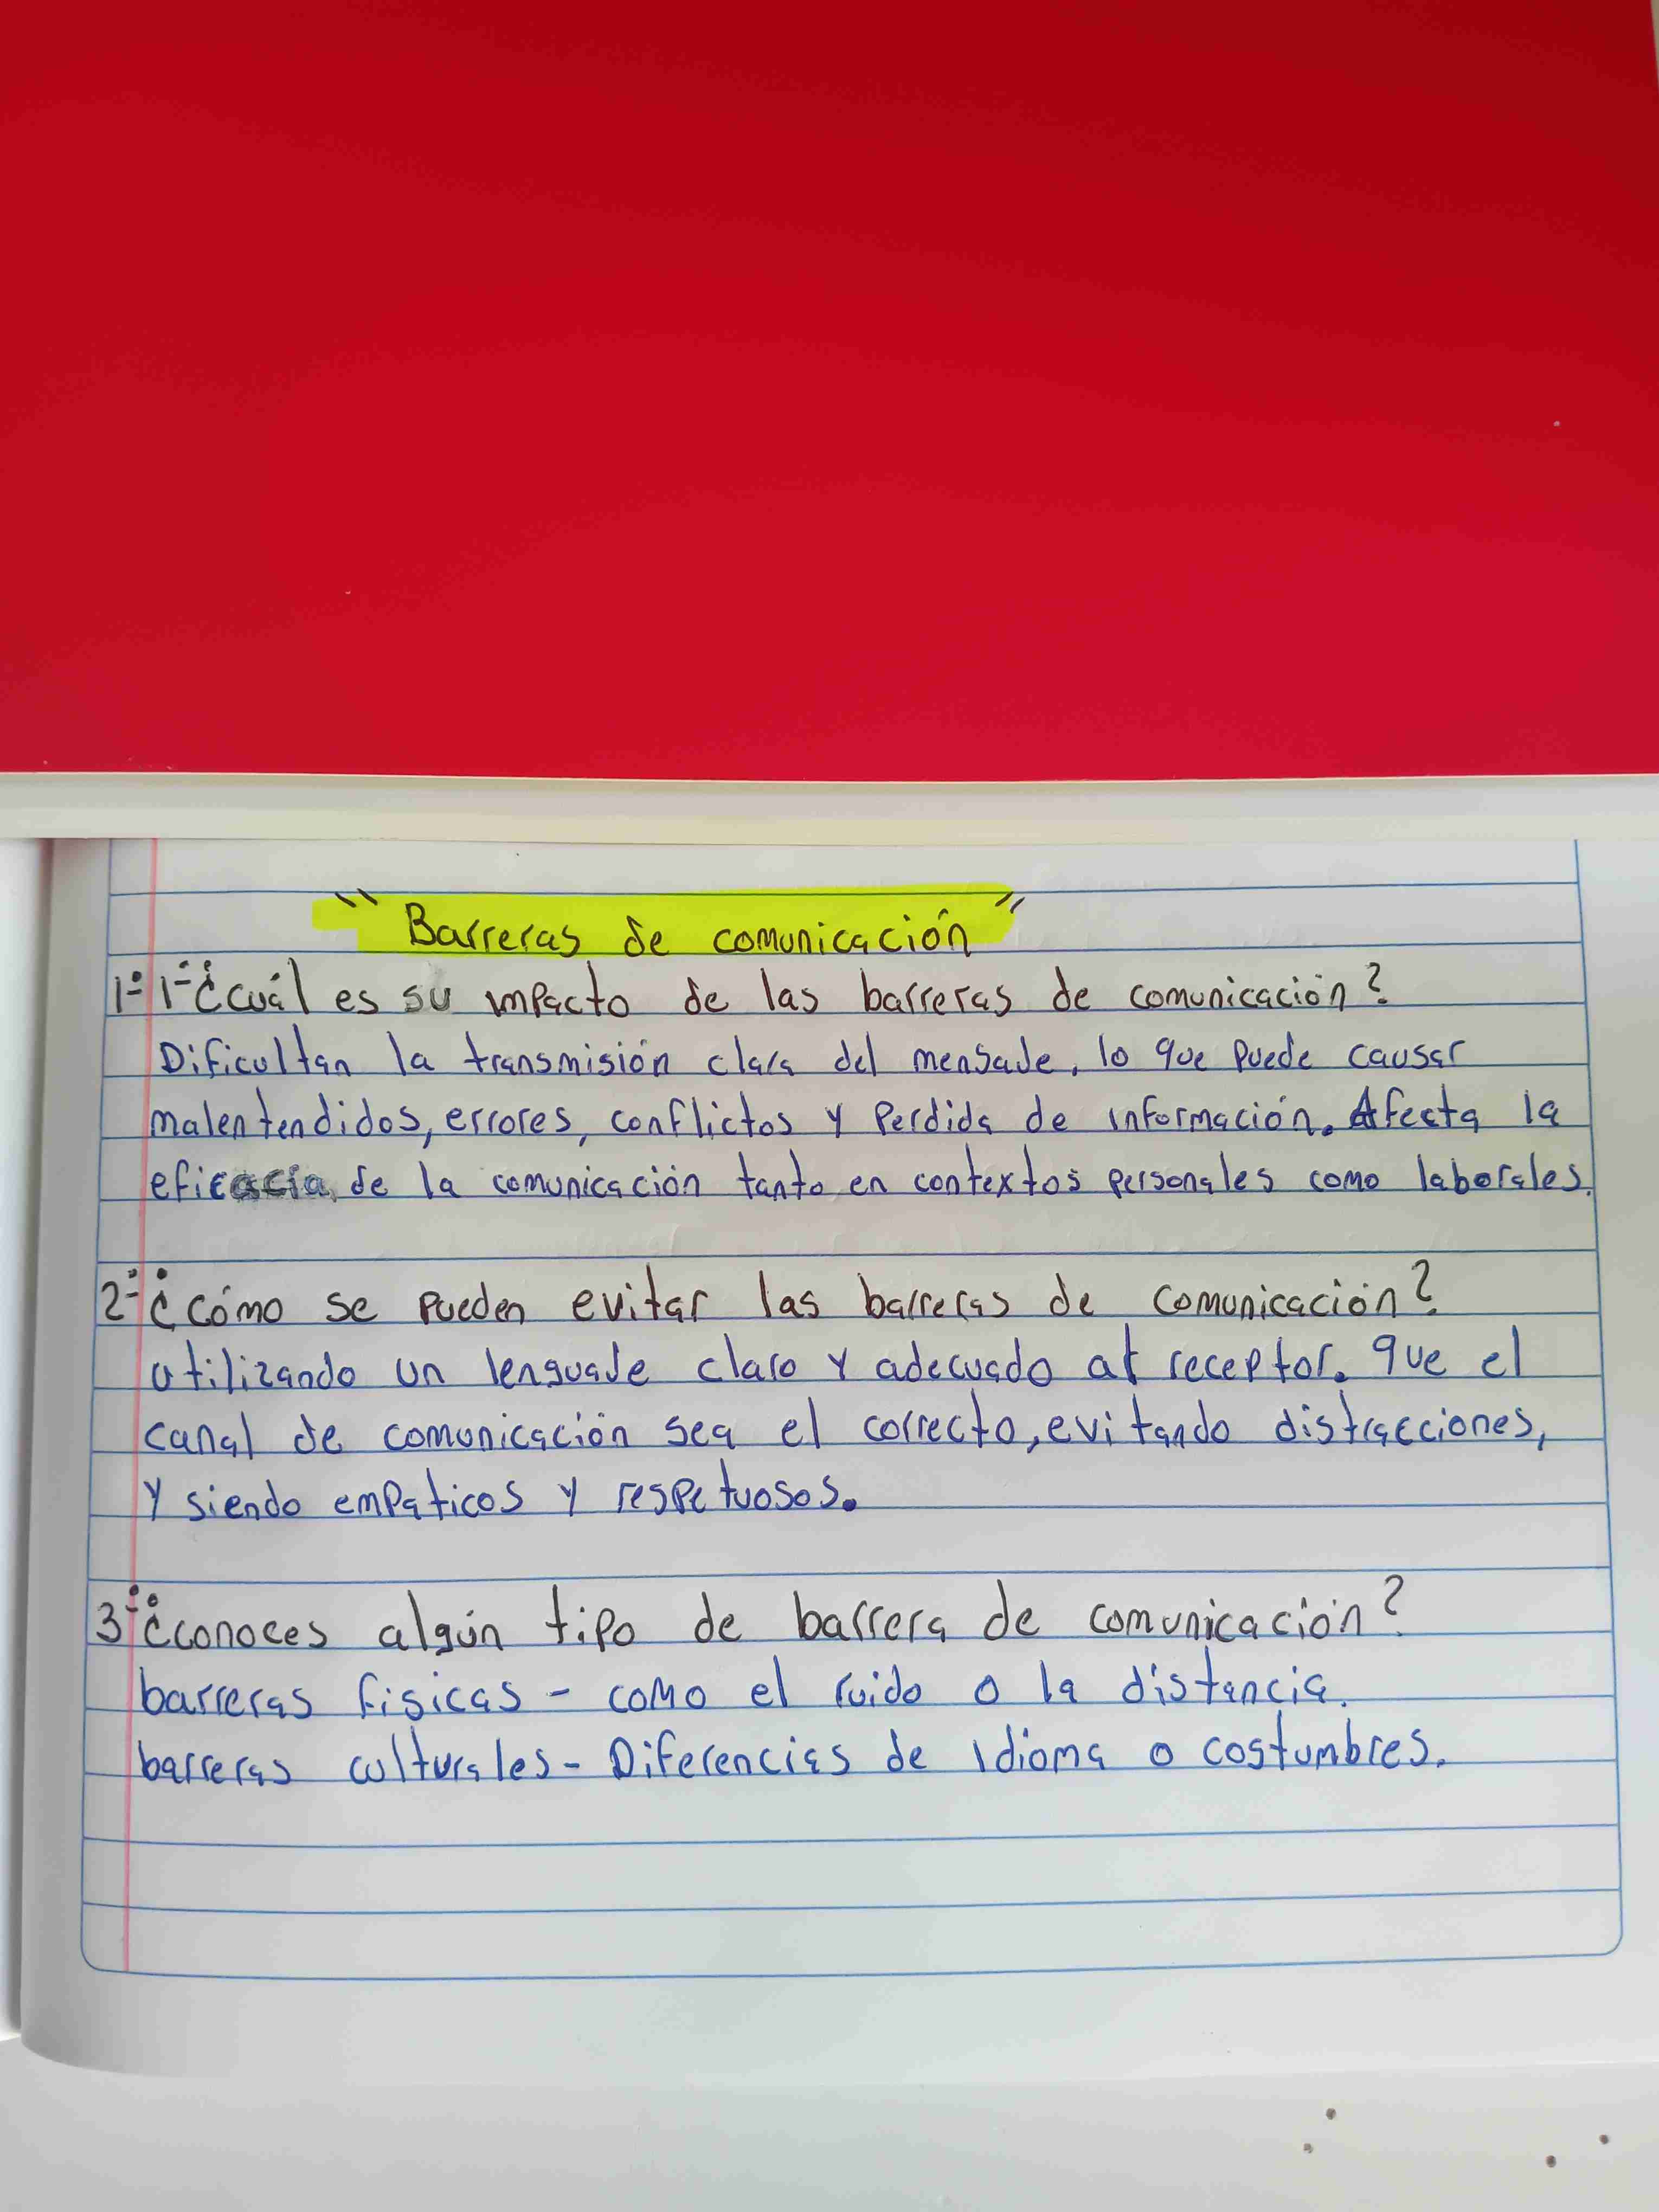 "Barreras de comunicación"
1-1-¿cuál es su impacto de las barreras de comunicación?
Dificultan la transmisión clara del mensaje, lo que puede causar
malentendidos, errores, conflictos y perdida de información. Afecta la
eficacia de la comunicación tanto en contextos personales como laborales.
2-¿cómo se pueden evitar las barreras de comunicación?
utilizando un lenguaje claro y adecuado al receptor. que el
canal de comunicación sea el correcto, evitando distracciones,
y siendo empaticos y respetuosos.
3-¿conoces algún tipo de barrera de comunicación?
barreras fisicas - como el ruido o la distancia.
barreras culturales - Diferencias de idioma o costumbres.